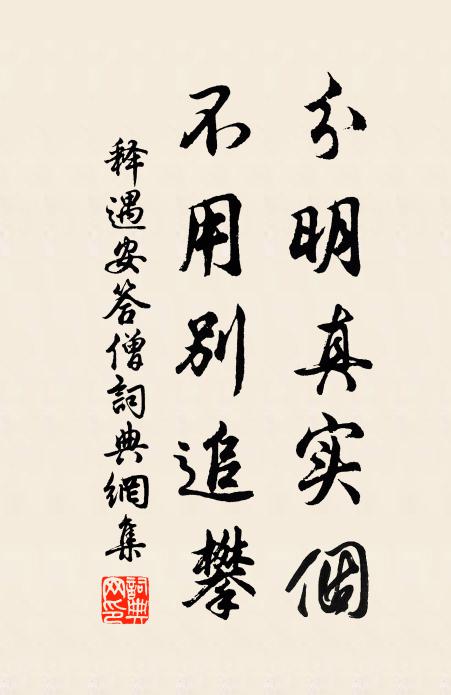 分明真实個
不用别追攀
释遇安答僧詞典網集
詞典网印